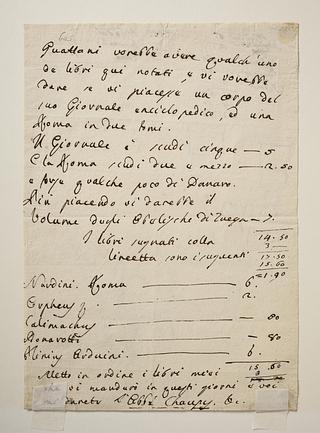 Guattani vorebbe avere qualch'uno
de libri qui notati, e vi vorebbe
dare se vi piacesse un corpo del
suo Giornale enciclopedico, ed una
Roma in due tomi.
Il Giornale è scudi cinque — 5
E la Roma scudi due e mezzo — 2.50
e pose qualche poco di Danaro.
Più piacendo vi darebbe il
Volume degli Obelischi di Zuega — 7.
14.50
3 —
I libri segnati colla
lineetta sono i seguenti 17.50
15.60
1.90
Nardini. Roma — 6.
Orpheus — 2.
Callimachus — 80
Bonarotti — 80
Plinius Arduini. — 6.
15.60
Metto in ordine i libri miei
vi manderò in questi giorni e voi
l'Abbé Chaupy, &c.